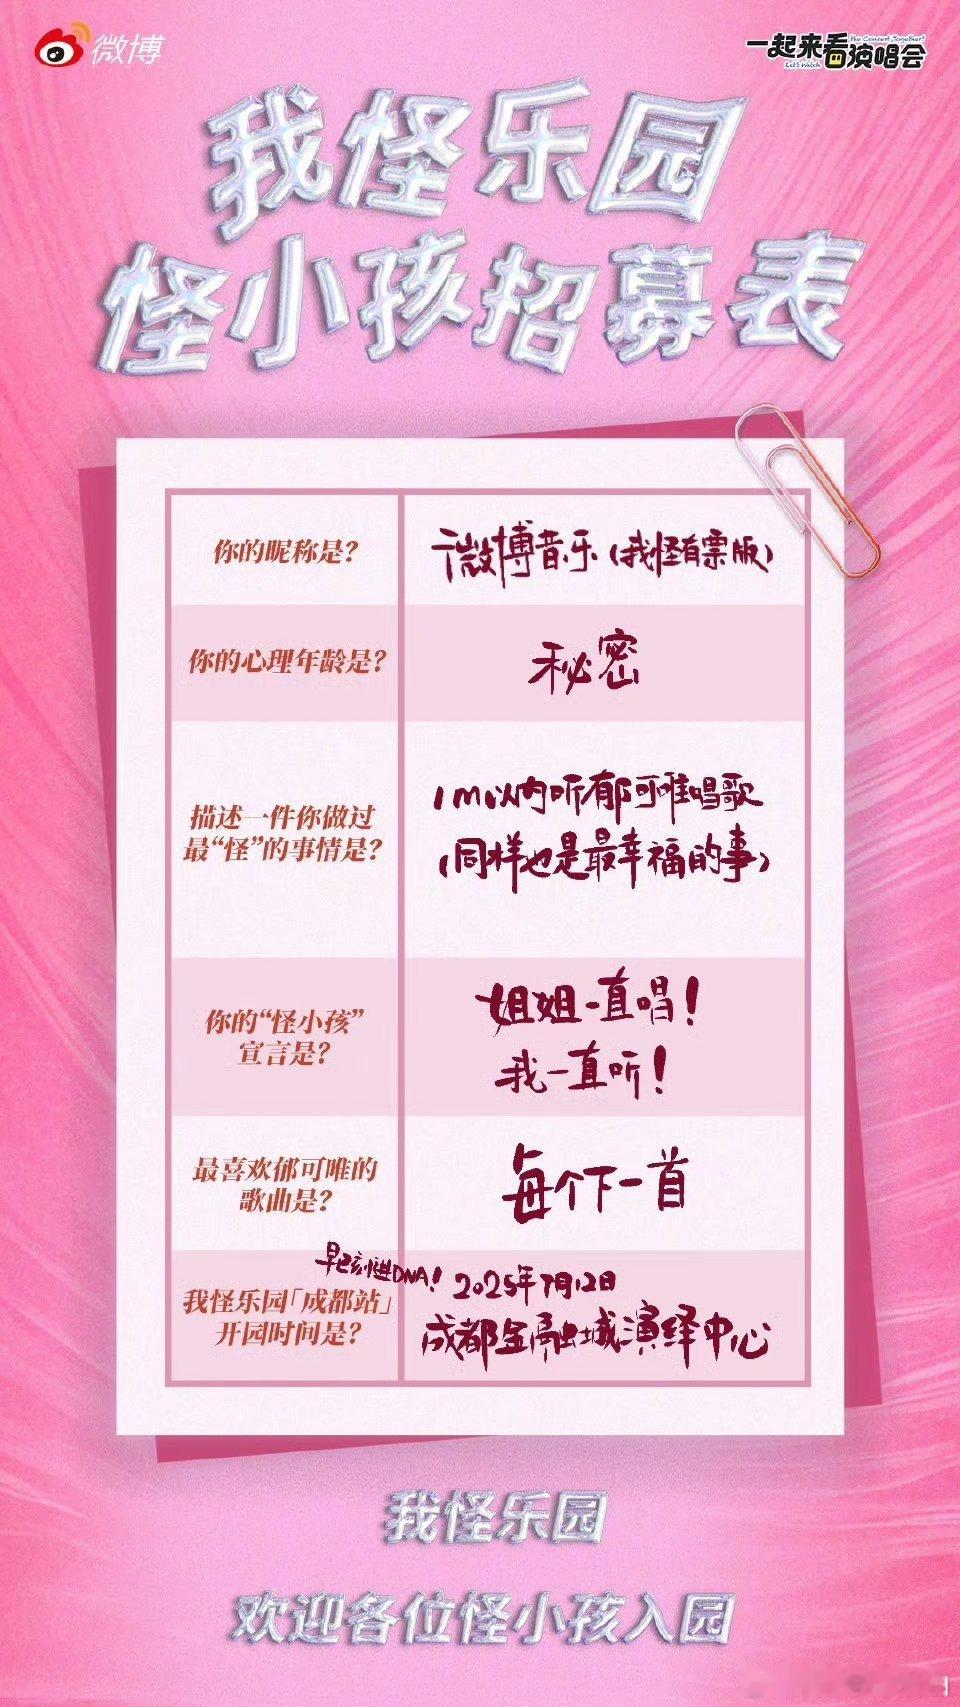 微博
一起来看演唱会
The Concert Together!
Let's Watch
我怪乐园
怪小孩招募表
你的昵称是？
微博音乐（我怪有票版）
你的心理年龄是？
秘密
描述一件你做过
最“怪”的事情是？
1m以内听郁可唯唱歌
（同样也是最幸福的事）
你的“怪小孩”
宣言是？
姐姐一直唱！
我一直听！
最喜欢郁可唯的
歌曲是？
每个下一首
我怪乐园「成都站」
开园时间是？
早已刻进DNA！
2025年7月12日
成都金融城演绎中心
我怪乐园
欢迎各位怪小孩入园